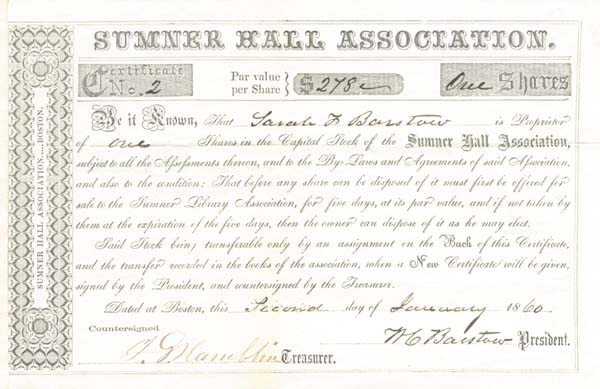 SUMNER HALL ASSOCIATION.
Certificate No. 2
Par value per Share } $278
One Shares
Be it Known, That Sarah F Barstow is Proprietor
of one Shares in the Capital Stock of the Sumner Hall Association,
subject to all the Assessments thereon, and to the By-Laws and Agreements of said Association,
and also to the condition: That before any share can be disposed of it must first be offered for
sale to the Sumner Library Association, for five days, at its par value, and if not taken by
them at the expiration of the five days, then the owner can dispose of it as he may elect.
Said Stock being transferable only by an assignment on the Back of this Certificate,
and the transfer recorded in the books of the association, when a New Certificate will be given,
signed by the President, and countersigned by the Treasurer.
Dated at Boston, this Second day of January 1860.
Countersigned
Hamblin Treasurer.
W C Barstow President.
SUMNER HALL ASSOCIATION,....BOSTON.